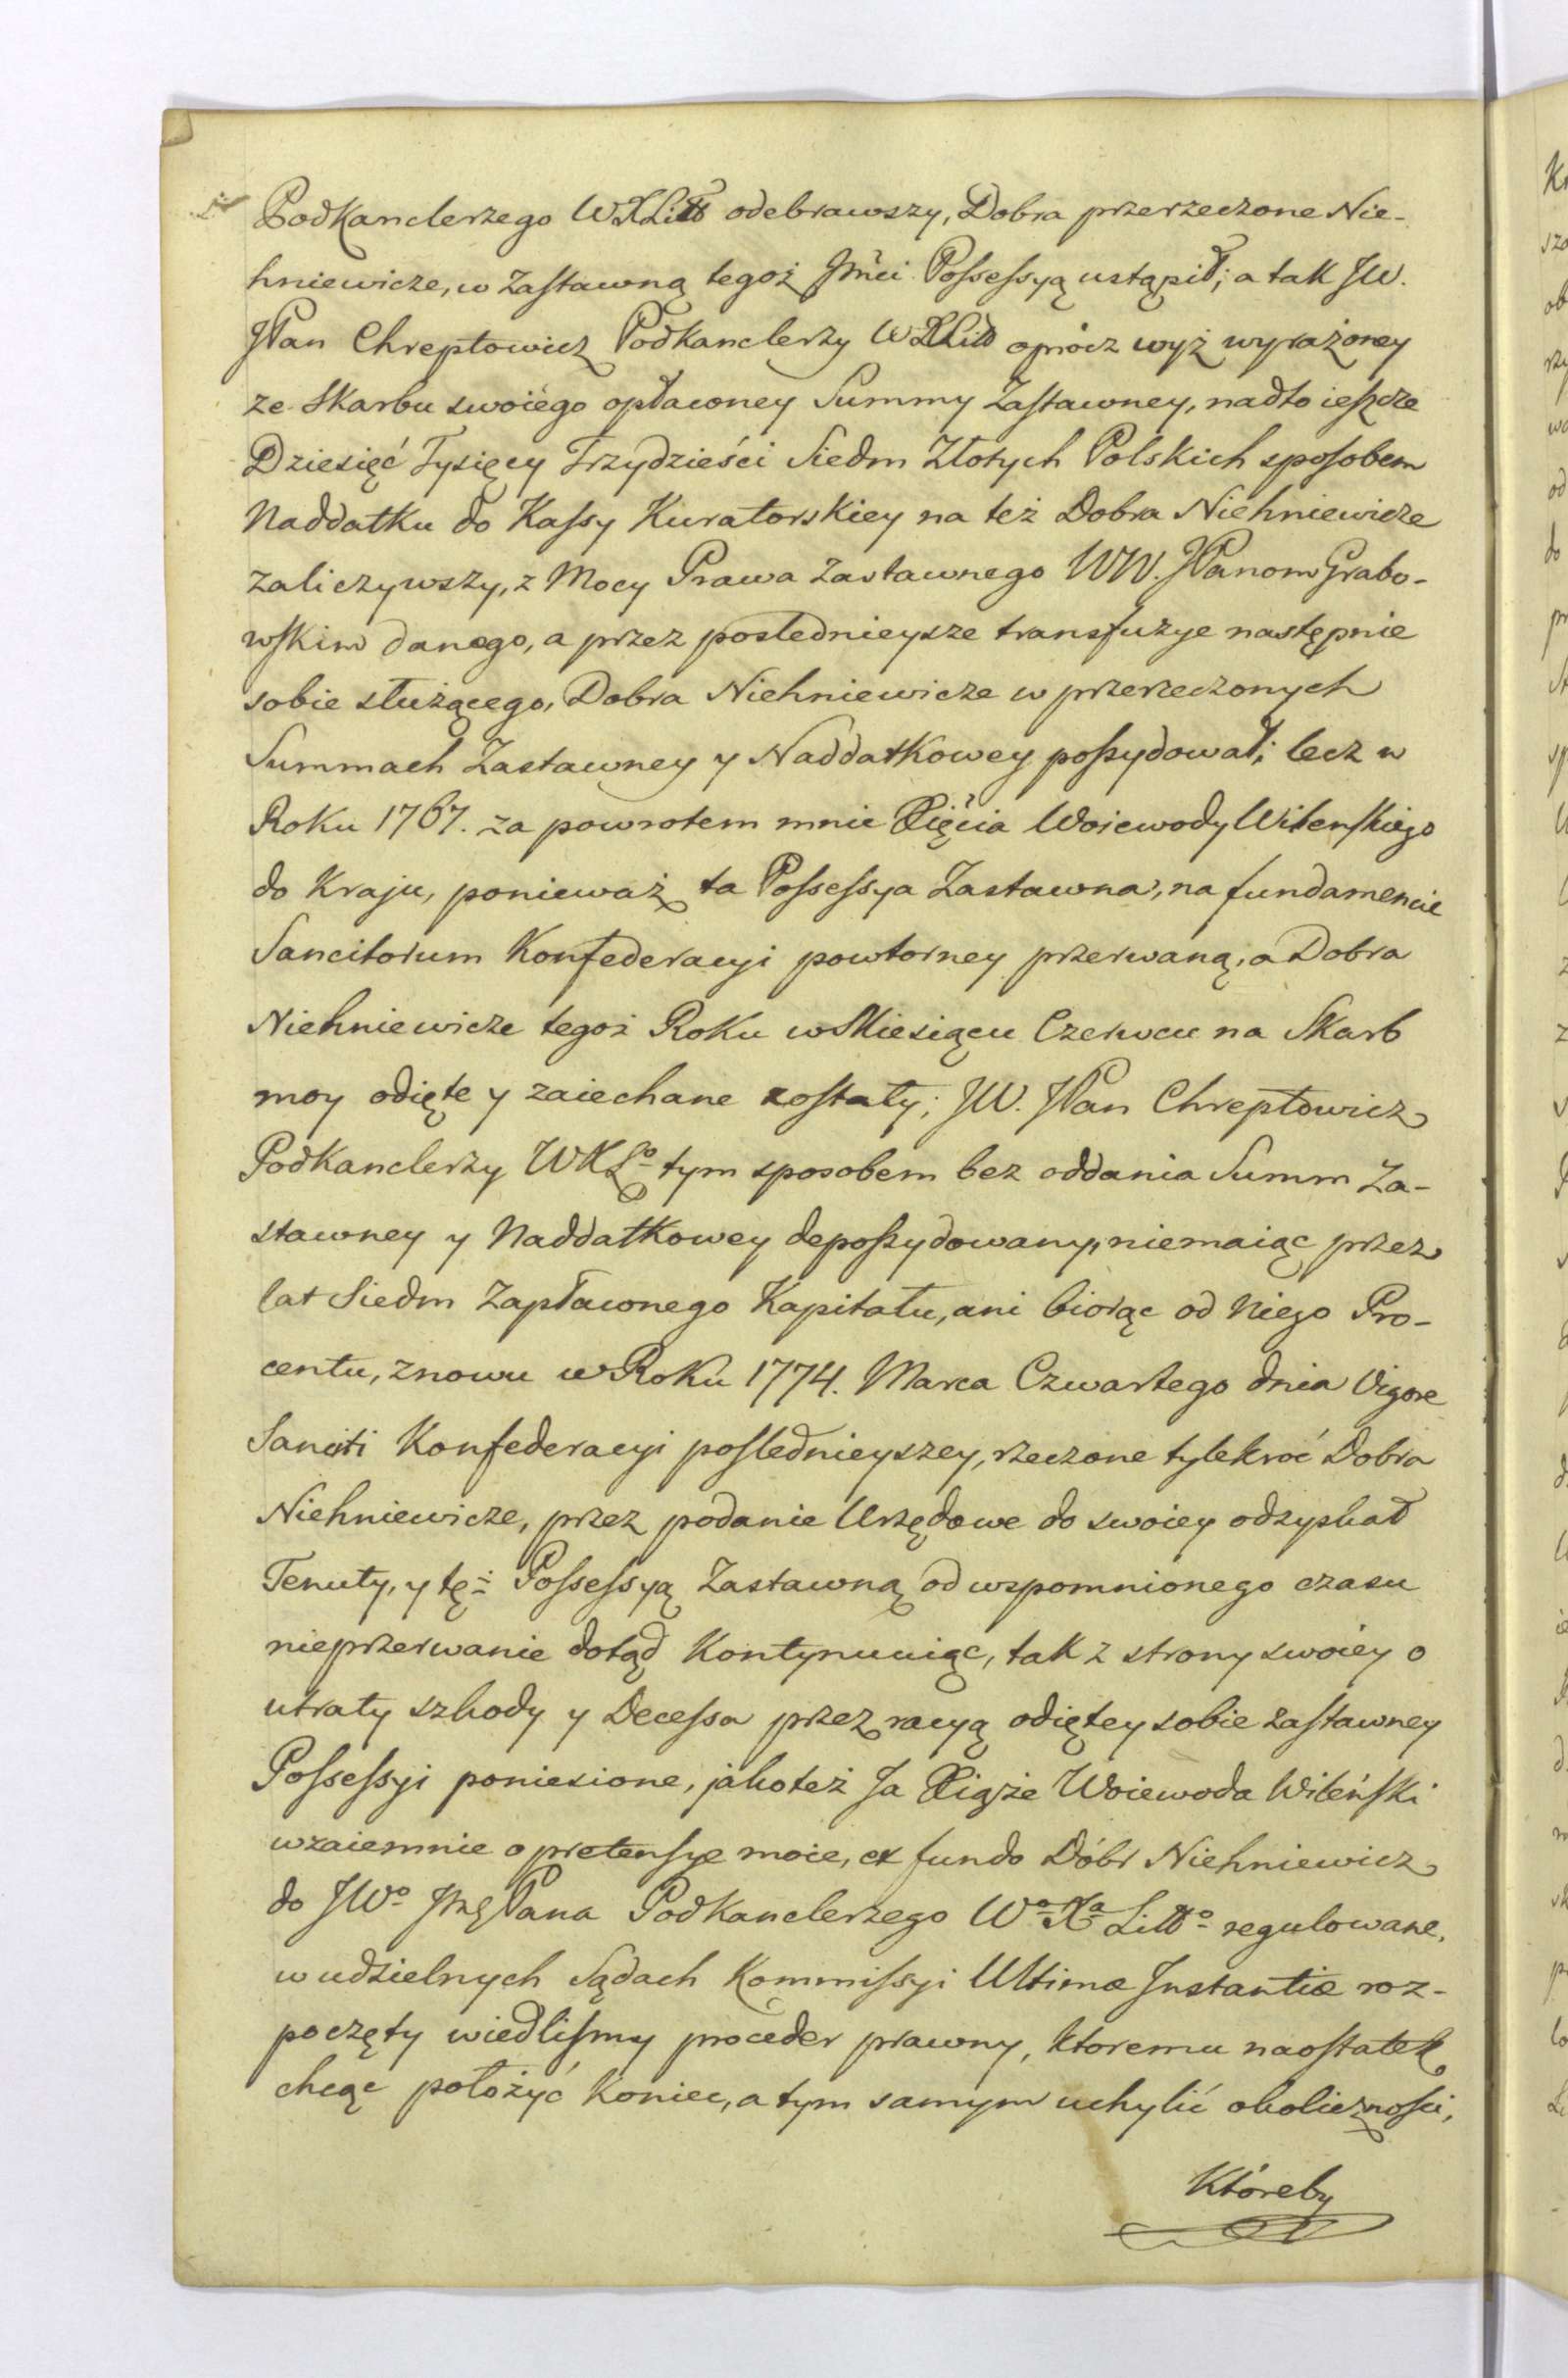 Podkanclerzego WXLitt odebrawszy, Dobra przerzeczone Nie-
hniewicze, w Zastawną tegoż Jmci Possessyą ustąpił; a tak JW.
JPan Chreptowicz Podkanclerzy WXLitt oprócz wyż wyrażoney
ze Skarbu swoiego opłaconey Summy Zastawney, nadto ieszcze
Dziesięć Tysięcy Trzydzieści Siedm Złotych Polskich sposobem
Naddatku do Kassy Kuratorskiey na też Dobra Niehniewicze
zaliczywszy, z Mocy Prawa Zastawnego WW. JPanom Grabo-
wskim danego, a przez poslednieysze transfuzye następnie
sobie służącego, Dobra Niehniewicze w przerzeczonych
Summach Zastawney y Naddatkowey possydował; lecz w
Roku 1767. za powrotem mnie Xięcia Woiewody Wilenskiego
do Kraju, ponieważ ta Possessya Zastawna, na fundamencie
Sancitorum Konfederacyi powtorney przerwaną, a Dobra
Niehniewicze tegoż Roku w Miesiącu Czerwcu na Skarb
moy odięte y zaiechane zostały; JW. JPan Chreptowicz
Podkanclerzy WXLo tym sposobem bez oddania Summ Za-
stawney y Naddatkowey depossydowany, niemaiąc przez
lat Siedm Zapłaconego Kapitału, ani biorąc od Niego Pro-
centu, znowu w Roku 1774. Marca Czwartego dnia Vigore
Sanciti Konfederacyi poslednieyszey, rzeczone tylekroć Dobra
Niehniewicze, przez podanie Urzędowe do swoiey odzyskał
Tenuty, y tęż Possessyą Zastawną od wspomnionego czasu
nieprzerwanie dotąd Kontynuuiąc, tak z strony swoiey o
utraty szkody y Decessa przez racyą odiętey sobie zastawney
Possessyi poniesione, jakoteż Ja Xiąże Woiewoda Wileński
wzaiemnie o pretensye moie, ex fundo Dóbr Niehniewicz
do JWo JmgPana Podkanclerzego Wo Xa Litto regulowane,
w udzielnych Sądach Kommissyi Ultimæ Instantiæ roz-
poczęty wiedlismy proceder prawny, ktoremu naostatek
chcąc położyć koniec, a tym samym uchylić okoliczności,
Któreby